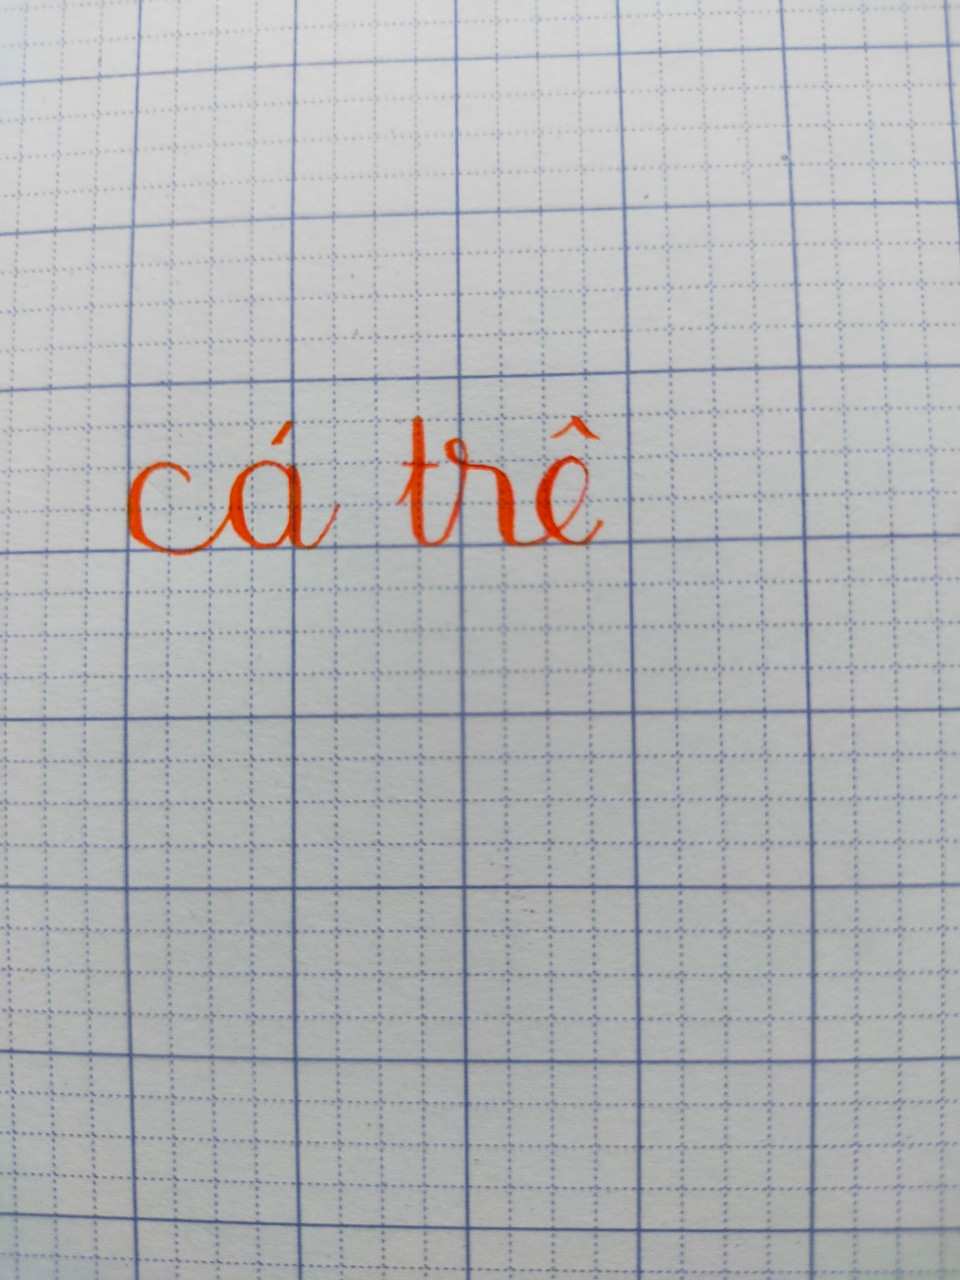 cá trê